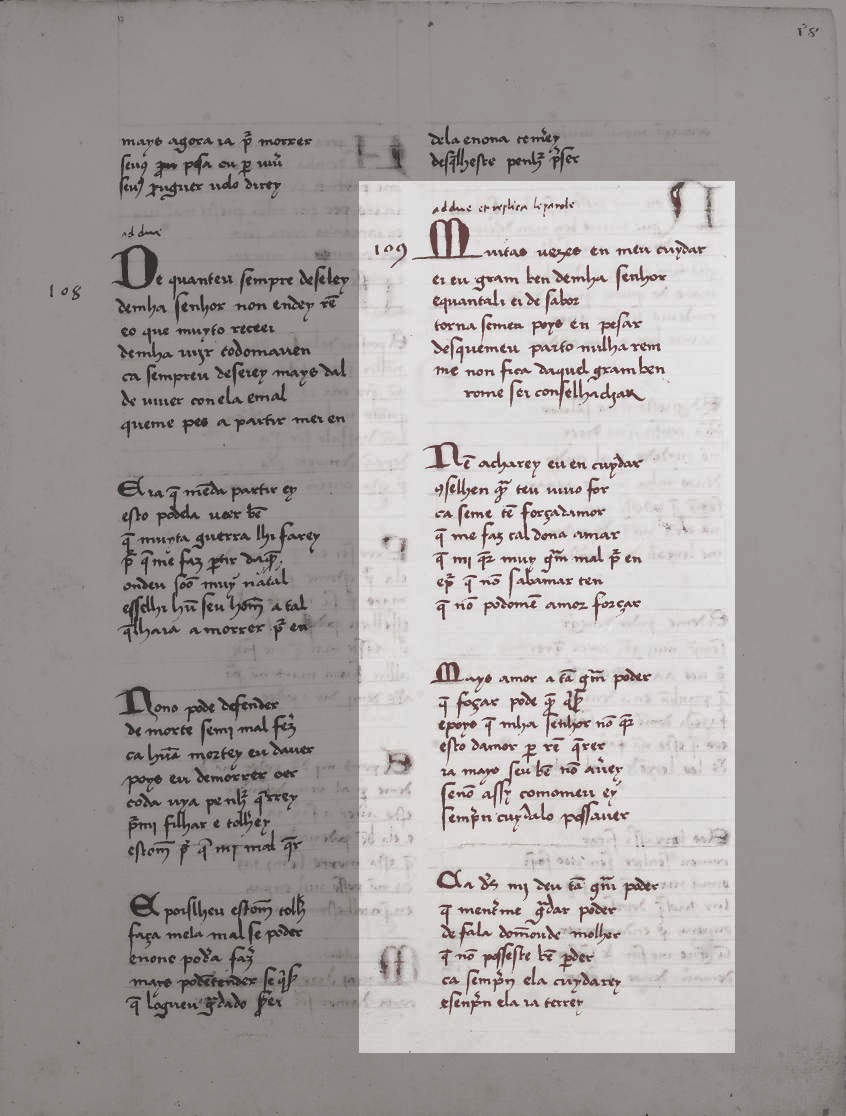 18
mays agora ia p̃ morrer
seu
posa ou
ueiu
uolo direy
ad due
108
De quanteu sempre deseiey
demha senhor non endey rẽ
eo que muyto receei
demha uiỹr todomauen
ca sempreu deseiey mays dal
de uiuer conela emal
queme pes a partir mei en
Era q̃ mẽda partir ey
esto podela uoer bẽ
q̃ muyta guerra lhi farey
p̃ q̃ mẽ faz ꝑtir daq̃
ondeu soõ muỹ natal
esselhi hũ seu homẽ a tal
q̃lhaia a morrer p̃ en
Nono pode defender
de morte semi mal fez̃
ca hũa mortey eu dauer
poys eu demorrer oer
toda uya
p̃mi filhar e tolhey
estom̃ p̃ q̃ mi mal q̃r
El poislheu estom̃ tolh̃
faça mela mal se poder
enone podr̃a faz̃
mays
q̃ logueu
dela enona temr̃ey
ad due et replica le parole
109
Muitas uezes en meu cuydar
ei eu gram ben demha senhor
equantali ei de sabor
torna semea poys en pesar
desquemeu parto nulha rem
me non fica daquel gram ben
rome sei conselhachar
Nẽ acharey eu en cuydar
ꝯselhen q̃ teu uiuo for
ca seme tẽ forçadamor
q̃ me faz cal dona amar
q̃ mi q̃r muy gr̃m mal p̃ en
ep̃ q̃ nõ sabamar ten
q̃ nõ podomẽ amor forçar
Mays amor a tã gr̃m poder
q̃ foçar pode
epoys q̃ mha senhor nõ q̃r
esto damor ꝑ rẽ q̃rer
ia mays seu bẽ nõ auer̃ey
senõ assy comomeu ey
semp̃n cuydalo possauer
Ca ds̃ mi deu tã gr̃m poder
q̃ mentr̃me gr̃dar poder
de fala domonde molher
q̃ nõ posseste bẽ ꝑder
ca semp̃n ela cuydarey
esenp̃n ela ia terrey